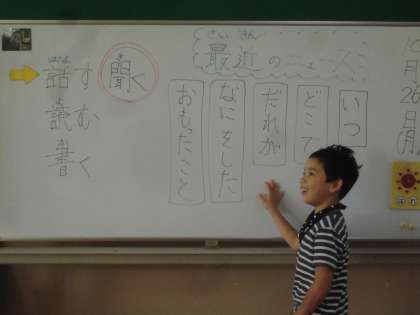 10月26日(月)
さいきん
最近のニュース
いつ
どこで
だれが
なにをした
おもったこと
聞く
話す
読む
書く